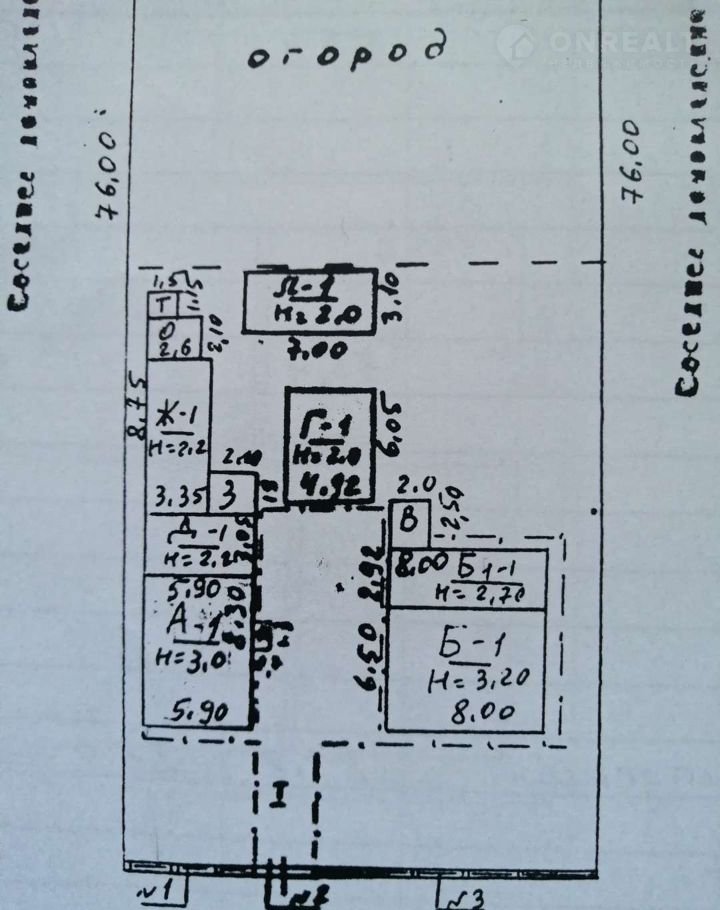 огород
ONREALT
НЕДВИЖИМОСТЬ
Соседнее
Соседнее
76,00
76,00
1,5
Т
О
2,6
2,10
Л-1
Н=2,0
7.00
3,10
8,75
Ж-1
Н=2,2
3,35
З
Г-1
Н=2,0
4,92
6,05
2.0
В
2,50
Д-1
5,90
8,30
А-1
Н=3,0
5,90
8,00
2,92
Б1-1
Н=2,70
6,50
Б-1
Н=3,20
8,00
I
№1
№2
№3